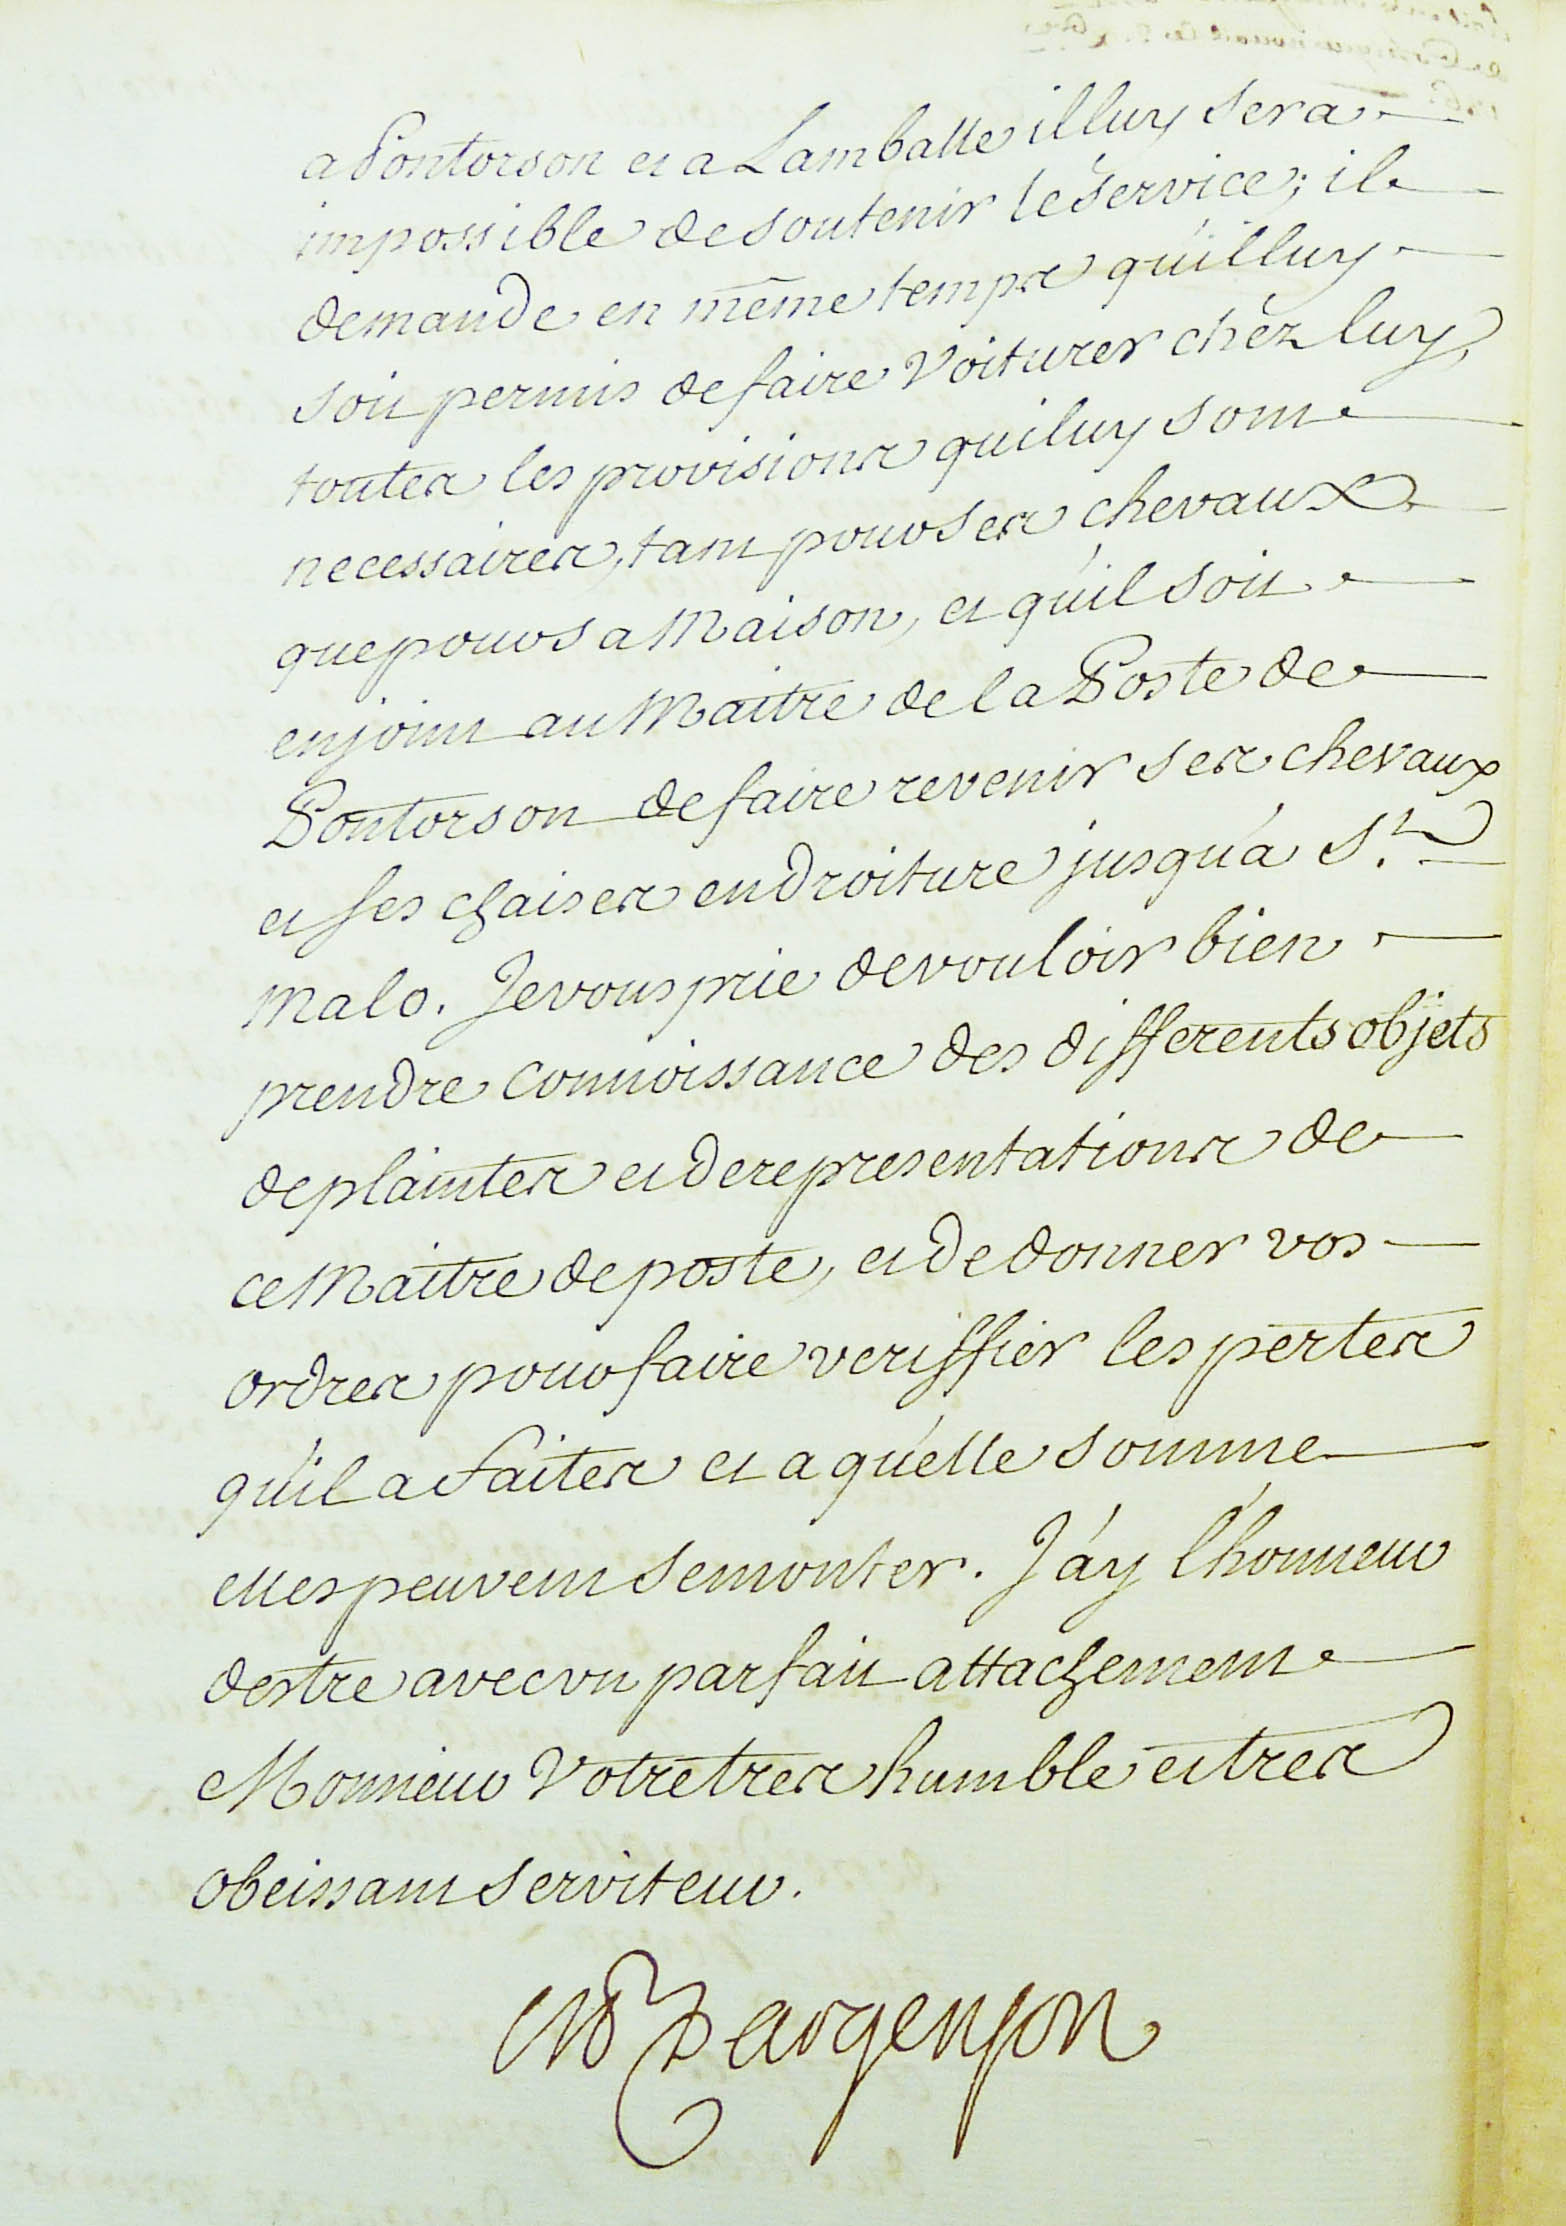 a Pontorson et a Lamballe il luy sera
impossible de soutenir le service; il
demande en même temps qu'il luy
soit permis de faire Voiturer chéz luy,
toutes les provisions qui luy sont
necessaires, tant pour ses chevaux
que pour sa Maison, et qu'il soit
enjoint au Maitre de la Poste de
Pontorson de faire revenir ses chevaux
et ses chaises en droiture jusqu'a St.
Malo. Je vous prie de vouloir bien
prendre connoissance des differents objets
de plaintes et de representations de
ce Maitre de poste, et de donner vos
ordres pour faire veriffier les pertes
qu'il a faites et a qu'elle somme
elles peuvent se monter. J'ay l'honneur
destre avec un parfait attachement
Monsieur Votre tres humble et tres
obeissant serviteur.
M Dargenson